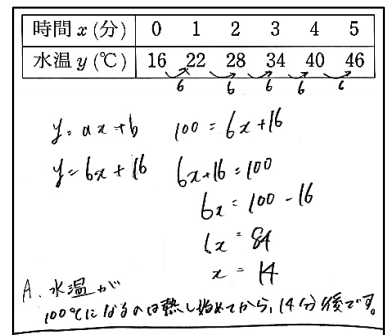 時間 x (分) 0 1 2 3 4 5
水温 y (℃) 16 22 28 34 40 46
6 6 6 6 6
y = ax + b 100 = 6x + 16
y = 6x + 16 6x + 16 = 100
6x = 100 - 16
6x = 84
x = 14
A. 水温が
100℃になるのは熱し始めてから、14分後です。